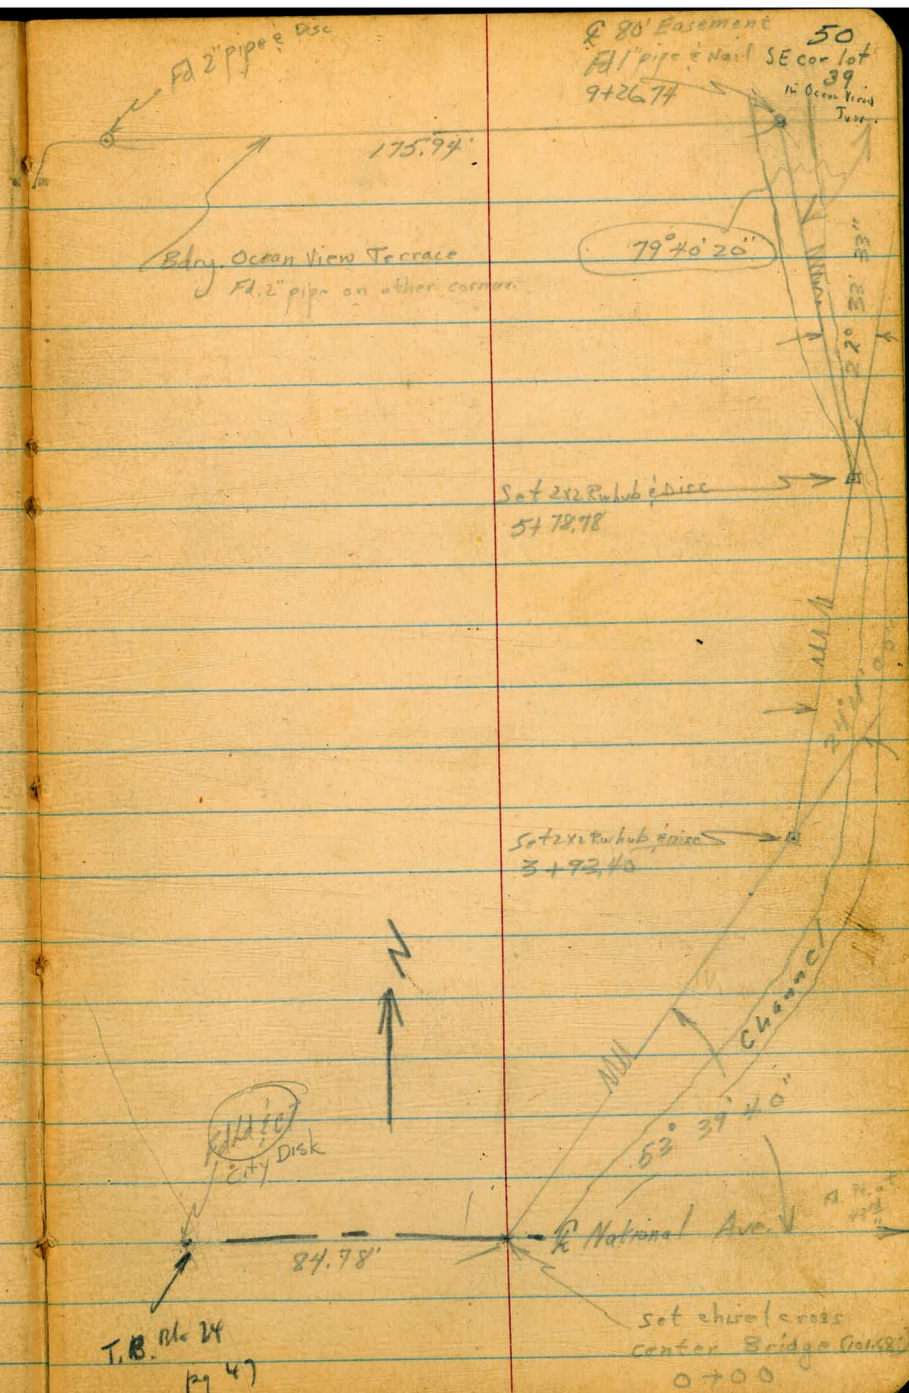 Fd. 2" pipe & Disc
℄ 80' Easement
Fd 1" pipe & Nail
9+26.74
50
SE cor lot
39
in Ocean View
175.94'
79° 40' 20"
Bdry. Ocean View Terrace
Fd. 2" pipe on other corner.
22° 33' 33"
Set 2x2 Rw hub & Disc
5+78.78
Set 2x2 Rw hub & Disc
3+93.40
N
Channel
53° 39' 40"
City Disk
84.78'
℄ National Ave.
T.B. Blk 24
pg 47
set chisel cross
center Bridge
0+00